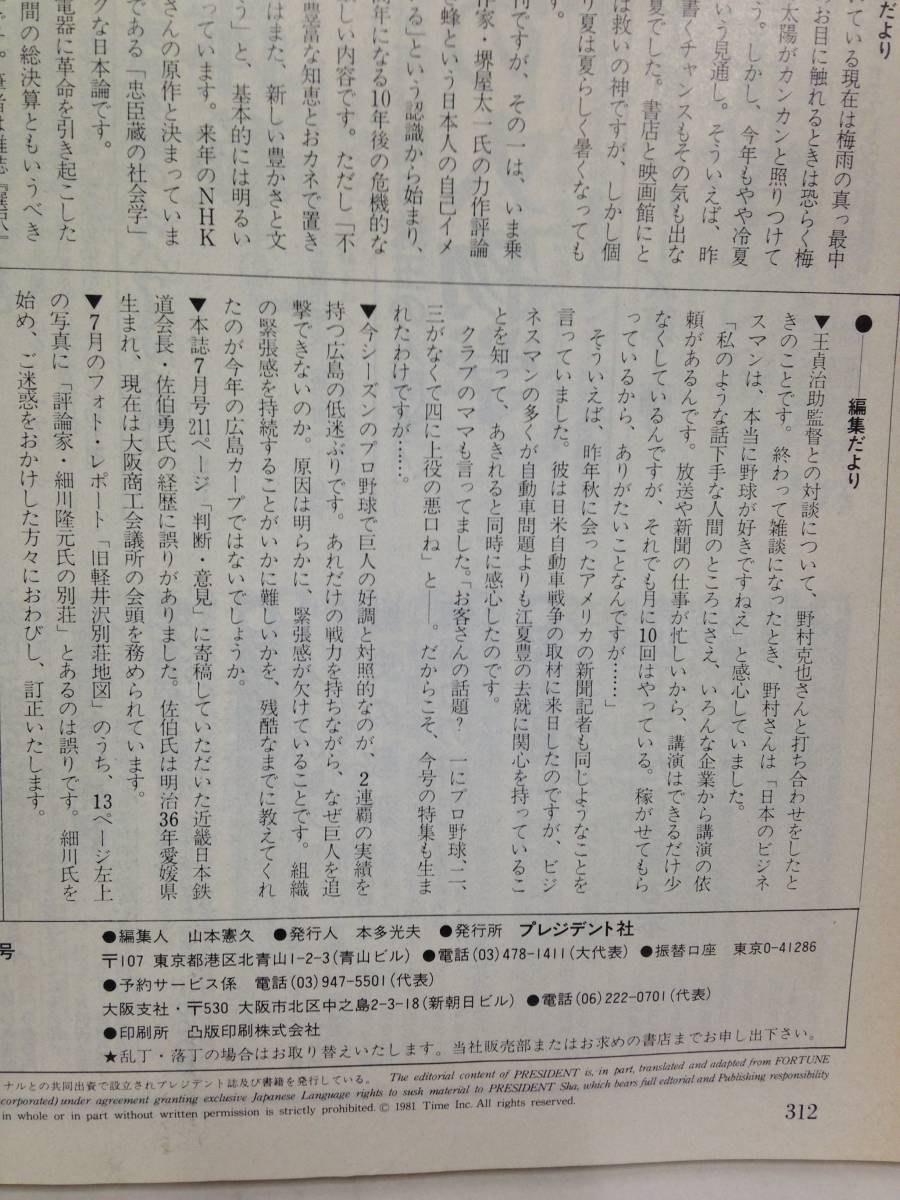 だより
れている現在は梅雨の真っ最中
お目に触れるときは恐らく梅
太陽がカンカンと照りつけて
う。しかし、今年もやや冷夏
いう見通し。そういえば、昨
書くチャンスもその気も出な
夏でした。書店と映画館にと
は救いの神ですが、しかし個
り夏は夏らしく暑くなっても
す。
刊ですが、その一は、いま乗
作家・堺屋太一氏の力作評論
き蜂という日本人の自己イメ
する」という認識から始まり、
周年になる10年後の危機的な
しい内容です。ただし「不
豊富な知恵とおカネで置き
はまた、新しい豊かさと文
う」と、基本的には明るい
っています。来年のNHK
さんの原作と決まっていま
である「忠臣蔵の社会学」
クな日本論です。
電器に革命を引き起こした
間の総決算ともいうべき
●――編集だより
▼王貞治助監督との対談について、野村克也さんと打ち合わせをしたと
きのことです。終わって雑談になったとき、野村さんは「日本のビジネ
スマンは、本当に野球が好きですねえ」と感心していました。
「私のような話下手な人間のところにさえ、いろんな企業から講演の依
頼があるんです。放送や新聞の仕事が忙しいから、講演はできるだけ少
なくしているんですが、それでも月に10回はやっている。稼がせてもら
っているから、ありがたいことなんですが……」
そういえば、昨年秋に会ったアメリカの新聞記者も同じようなことを
言っていました。彼は日米自動車戦争の取材に来日したのですが、ビジ
ネスマンの多くが自動車問題よりも江夏豊の去就に関心を持っているこ
とを知って、あきれると同時に感心したのです。
クラブのママも言ってました。「お客さんの話題? 一にプロ野球、二、
三がなくて四に上役の悪口ね」と――。だからこそ、今号の特集も生ま
れたわけですが……。
▼今シーズンのプロ野球で巨人の好調と対照的なのが、2連覇の実績を
持つ広島の低迷ぶりです。あれだけの戦力を持ちながら、なぜ巨人を追
撃できないのか。原因は明らかに、緊張感が欠けていることです。組織
の緊張感を持続することがいかに難しいかを、残酷なまでに教えてくれ
たのが今年の広島カープではないでしょうか。
▼本誌7月号211ページ「判断・意見」に寄稿していただいた近畿日本鉄
道会長・佐伯勇氏の経歴に誤りがありました。佐伯氏は明治36年愛媛県
生まれ、現在は大阪商工会議所の会頭を務められています。
▼7月のフォト・レポート「旧軽井沢別荘地図」のうち、13ページ左上
の写真に「評論家・細川隆元氏の別荘」とあるのは誤りです。細川氏を
始め、ご迷惑をおかけした方々におわびし、訂正いたします。
号
●編集人 山本憲久 ●発行人 本多光夫 ●発行所 プレジデント社
〒107 東京都港区北青山1-2-3(青山ビル) ●電話(03)478-1411(大代表) ●振替口座 東京0-41286
●予約サービス係 電話(03)947-5501(代表)
大阪支社・〒530 大阪市北区中之島2-3-18(新朝日ビル) ●電話(06)222-0701(代表)
●印刷所 凸版印刷株式会社
★乱丁・落丁の場合はお取り替えいたします。当社販売部またはお求めの書店までお申し出下さい。
ナルとの共同出資で設立されプレジデント誌及び書籍を発行している。 The editorial content of PRESIDENT is, in part, translated and adapted from FORTUNE
corporated) under agreement granting exclusive Japanese Language rights to sush material to PRESIDENT Sha, which bears full edtorial and Publishing responsibility
in whole or in part without written permission is strictly prohibited. © 1981 Time Inc. All rights reserved.
312